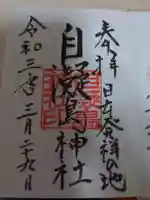 奉拝 日本発祥の地
自凝島神社
令和三年三月二十九日